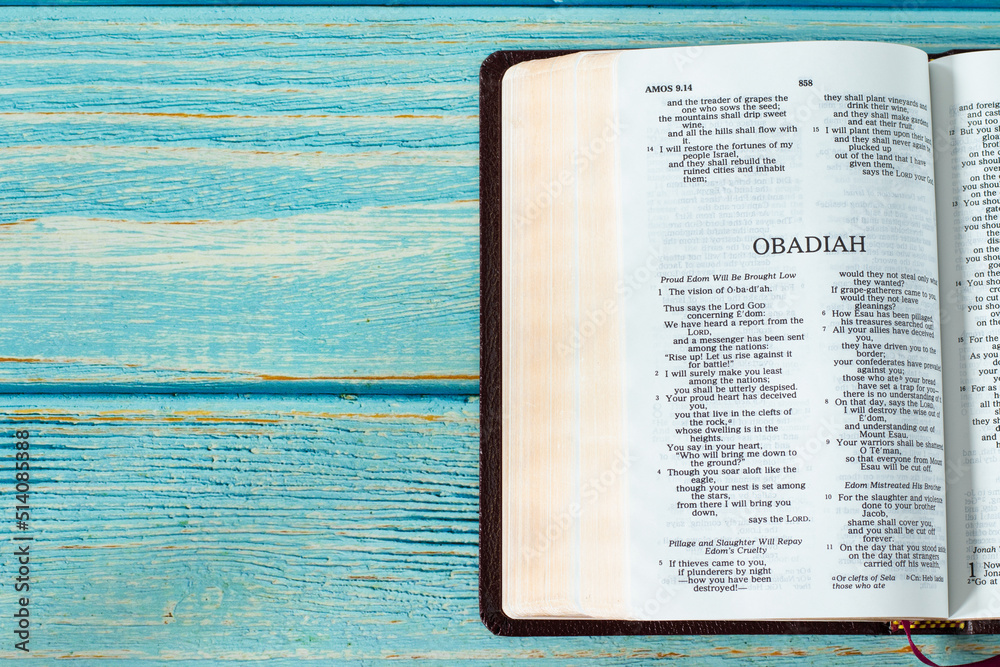 AMOS 9.14
858
and the treader of grapes the
one who sows the seed;
the mountains shall drip sweet
wine,
and all the hills shall flow with
it.
14 I will restore the fortunes of my
people Israel,
and they shall rebuild the
ruined cities and inhabit
them;
they shall plant vineyards and
drink their wine,
and they shall make gardens
and eat their fruit.
15 I will plant them upon their land,
and they shall never again be
plucked up
out of the land that I have
given them,
says the LORD your God.
OBADIAH
Proud Edom Will Be Brought Low
1 The vision of O·ba·di'ah.
Thus says the Lord GOD
concerning E'dom:
We have heard a report from the
LORD,
and a messenger has been sent
among the nations:
"Rise up! Let us rise against it
for battle!"
2 I will surely make you least
among the nations;
you shall be utterly despised.
3 Your proud heart has deceived
you,
you that live in the clefts of
the rock,a
whose dwelling is in the
heights.
You say in your heart,
"Who will bring me down to
the ground?"
4 Though you soar aloft like the
eagle,
though your nest is set among
the stars,
from there I will bring you
down,
says the LORD.
Pillage and Slaughter Will Repay
Edom's Cruelty
5 If thieves came to you,
if plunderers by night
—how you have been
destroyed!—
would they not steal only what
they wanted?
If grape-gatherers came to you,
would they not leave
gleanings?
6 How Esau has been pillaged,
his treasures searched out!
7 All your allies have deceived
you,
they have driven you to the
border;
your confederates have prevailed
against you;
those who ate b your bread
have set a trap for you—
there is no understanding of it.
8 On that day, says the LORD,
I will destroy the wise out of
E'dom,
and understanding out of
Mount Esau.
9 Your warriors shall be shattered,
O Te'man,
so that everyone from Mount
Esau will be cut off.
Edom Mistreated His Brother
10 For the slaughter and violence
done to your brother
Jacob,
shame shall cover you,
and you shall be cut off
forever.
11 On the day that you stood aside,
on the day that strangers
carried off his wealth,
a Or clefts of Sela b Cn: Heb
those who ate
and foreig
and cas
you too
12 But you s
gloa
brot
on the
you shou
over
on the
you shou
on the
13 You shou
gate
on the
you shou
on the
14 You sho
to cut
you shou
15 For the
As you
your
16 For as
all th
they sh
Jonah
1 Now
Jona
2 "Go at
Adobe Stock | #514085388